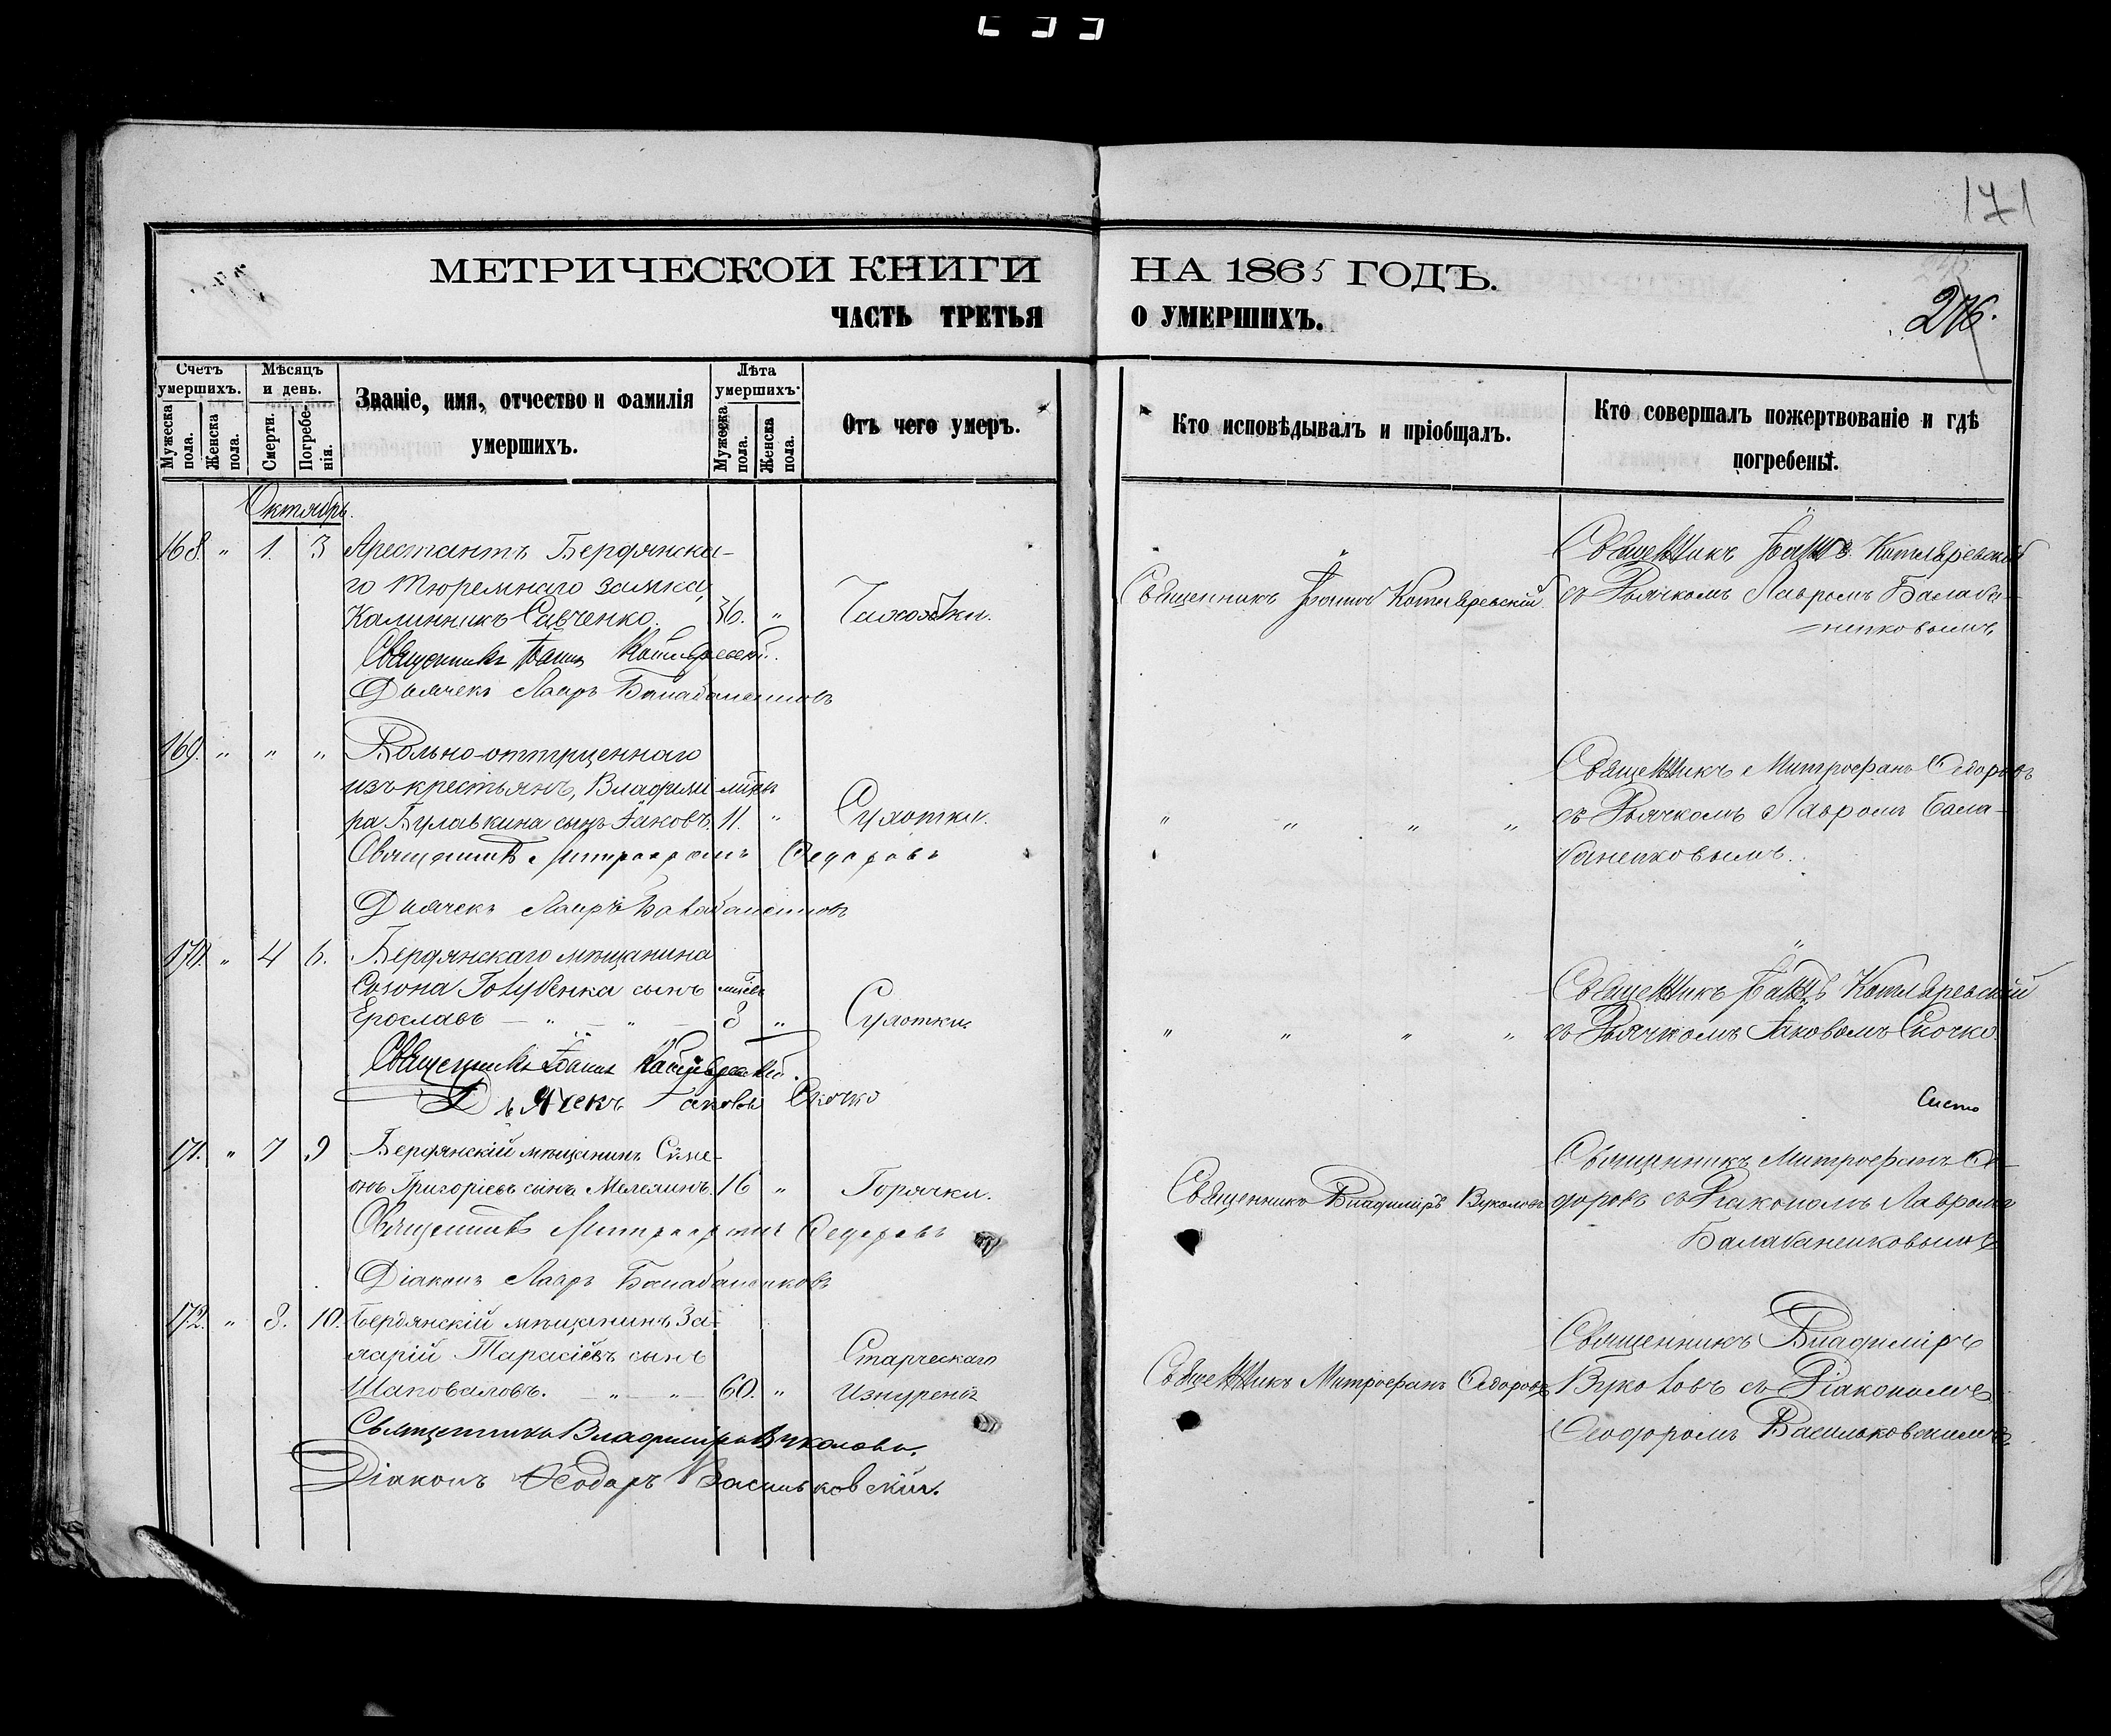 171
МЕТРИЧЕСКОЙ КНИГИ НА 1865 ГОДЪ.
276.
ЧАСТЬ ТРЕТЬЯ О УМЕРШИХЪ.
Счетъ умершихъ.
Мужеска пола.
Женска пола.
Мѣсяцъ и день.
Смерти.
Погребенія.
Званіе, имя, отчество и фамилія
умершихъ.
Лѣта умершихъ.
Мужеска пола.
Женска пола.
Отъ чего умеръ.
Кто исповѣдывалъ и пріобщалъ.
Кто совершалъ пожертвованіе и гдѣ
погребены.
Октябрь.
168. " 1. 3 Арестантъ Бердянска-
го тюремнаго замка,
Калинникъ Савченко. 36. "
Священникъ Іоаннъ Котляревскій
Священникъ Іоаннъ Котляревскій
съ Дьячкомъ Лавромъ Балаба-
ненковымъ.
Священникъ Іоаннъ Котляревскій.
Дьячекъ Лавръ Балабаненковъ
169. " " " Вольно-отпущеннаго
изъ крестьянъ, Владими-
ра Булавкина сынъ Іаковъ. 11. " Сухотки.
" " " "
Священникъ Митрофанъ Ѳедоровъ
съ Дьячкомъ Лавромъ Бала-
баненковымъ.
Священникъ Митрофанъ Ѳедоровъ
Дьячекъ Лавръ Балабаненковъ
170. " 4 6. Бердянскаго мѣщанина
Созона Голубенка сынъ
Ерославъ — " — " — 8 " Сухотки
" " " "
Священникъ Іоаннъ Котляревскій
съ Дьячкомъ Іаковомъ Скочко.
Священникъ Іоаннъ Котляревскій.
Дьячекъ Іаковъ Скочко
171. " 7 9 Бердянскій мѣщанинъ Симе-
онъ Григоріевъ сынъ 16 " Горячки.
Священникъ Владиміръ Вуколовъ
Священникъ Митрофанъ Ѳе-
доровъ съ Діакономъ Лавромъ
Балабаненковымъ
Священникъ Митрофанъ Ѳедоровъ
Діаконъ Лавръ Балабаненковъ
172. " 8. 10. Бердянскій мѣщанинъ
Тарасіевъ сынъ
Шаповаловъ. — " — " — 60. "
Старческаго
изнуренія
Священникъ Митрофанъ Ѳедоровъ
Священникъ Владиміръ
Вуколовъ съ Діакономъ
Ѳеодоромъ Васильковскимъ
Священникъ Владиміръ Вуколовъ.
Діаконъ Ѳеодоръ Васильковскій.